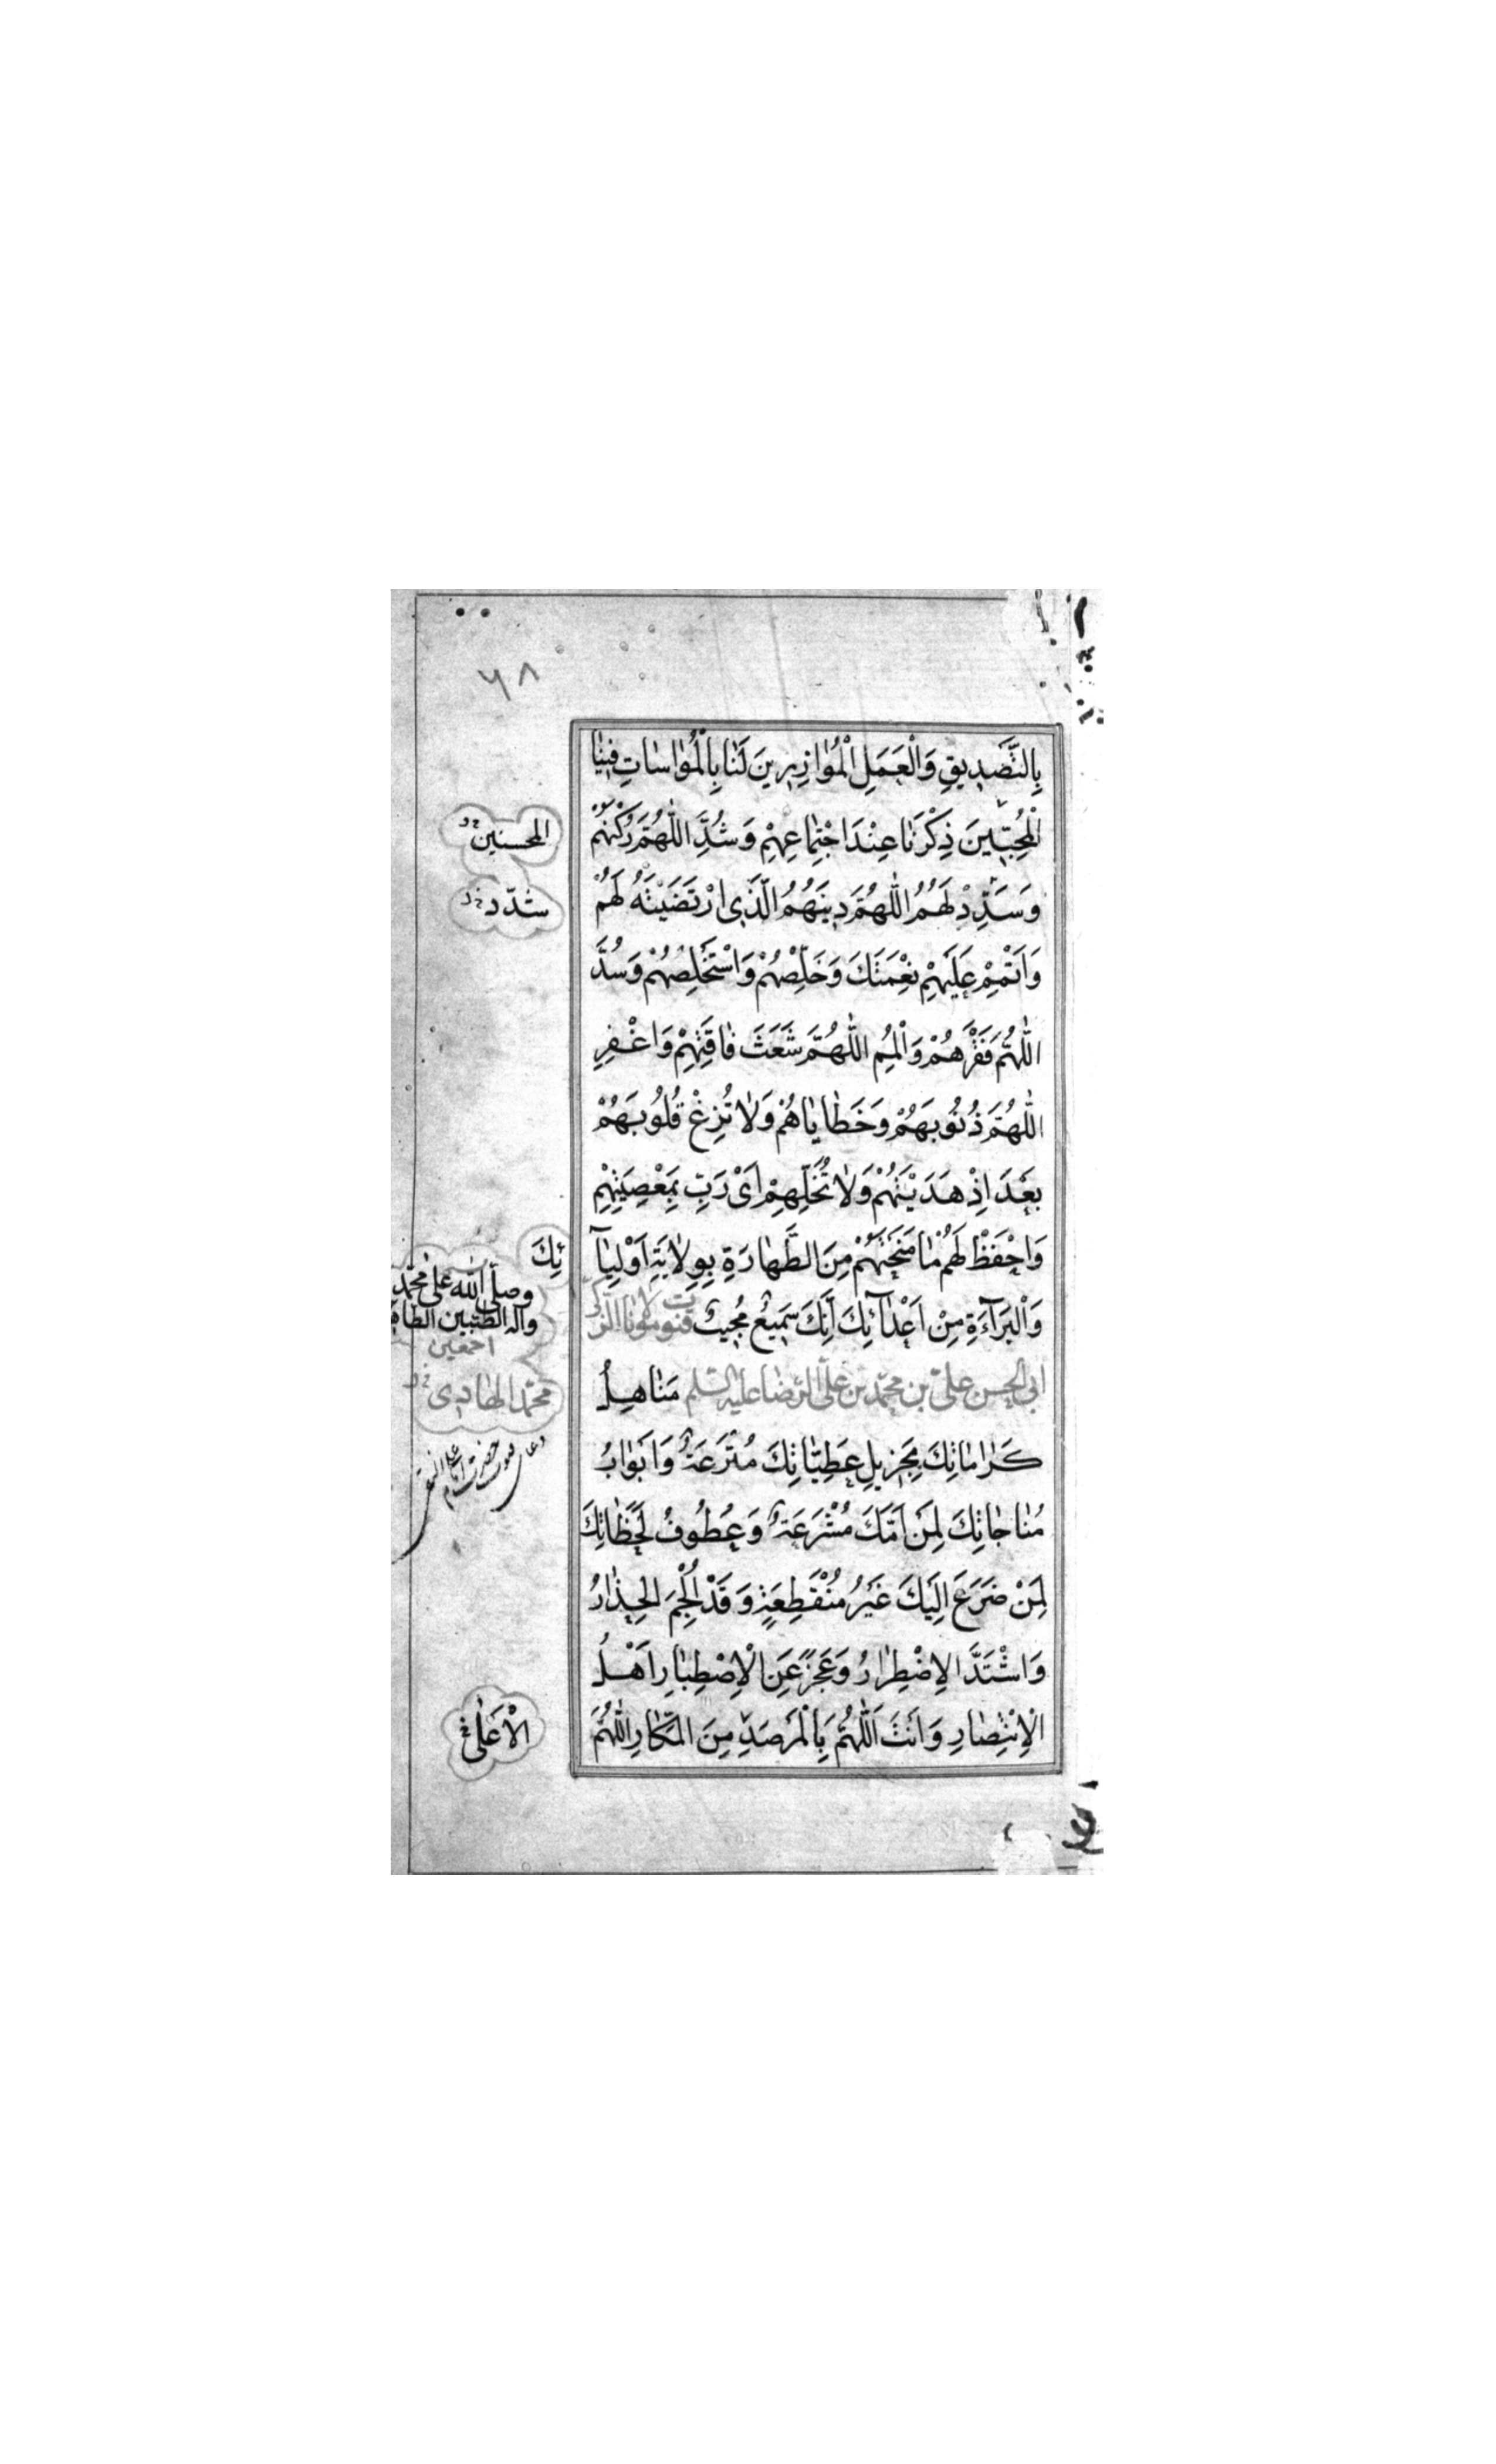 ۶۸
بِالتَّصْدِيقِ وَالْعَمَلِ الْمُوازِرِينَ لَنا بِالْمُواساتِ فِينا
الْمُحِبّينَ ذِكْرَنا عِنْدَ اجْتِماعِهِمْ وَشُدَّ اللّٰهُمَّ رُكْنَهُمْ
وَسَدِّدْ لَهُمُ اللّٰهُمَّ دِينَهُمُ الَّذِى ارْتَضَيْتَهُ لَهُمْ
وَاَتْمِمْ عَلَيْهِمْ نِعْمَتَكَ وَخَلِّصْهُمْ وَاسْتَخْلِصْهُمْ وَسُدَّ
اللّٰهُمَّ فَقْرَهُمْ وَالْمُمِ اللّٰهُمَّ شَعَثَ فاقَتِهِمْ وَاغْفِرِ
اللّٰهُمَّ ذُنُوبَهُمْ وَخَطاياهُمْ وَلا تُزِغْ قُلُوبَهُمْ
بَعْدَ اِذْ هَدَيْتَهُمْ وَلا تُخَلِّهِمْ اَىْ رَبِّ بِمَعْصِيَتِهِمْ
وَاحْفَظْ لَهُمْ ما مَنَحْتَهُمْ مِنَ الطَّهارَةِ بِوِلايَةِ اَوْلِيآ
ئِكَ
وَالْبَرآءَةِ مِنْ اَعْدآئِكَ اِنَّكَ سَمِيعٌ مُجِيبٌ قنوت مولانا الزكىّ
ابى الحسن علىّ بن محمّد بن علىّ الرّضا عليه السّلم مَناهِلُ
كَراماتِكَ بِجَزِيلِ عَطِيّاتِكَ مُتْرَعَةٌ وَاَبْوابُ
مُناجاتِكَ لِمَنْ اَمَّكَ مُشْرَعَةٌ وَعُطُوفُ لَحَظاتِكَ
لِمَنْ ضَرَعَ اِلَيْكَ غَيْرُ مُنْقَطِعَةٍ وَقَدْ اُلْجِمَ الحِذارُ
وَاشْتَدَّ الاِضْطِرارُ وَعَجَزَ عَنِ الْاِصْطِبارِ اَهْلُ
الْاِنْتِصارِ وَاَنْتَ اَللّٰهُمَّ بِالْمَرْصَدِ مِنَ المَكّارِ اللّٰهُمَّ
المحسنين
شدّد
وصلّى اللّه على محمّد
واله الطيّبين الطاه
اجمعين
محمّد الهادى
دعاى قنوت حضرت امام
الْاَعْلى